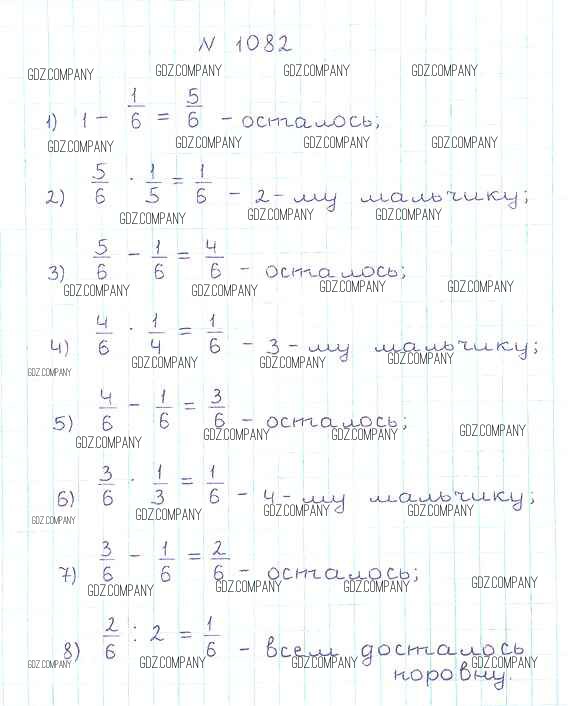 N 1082
GDZ.COMPANY GDZ.COMPANY GDZ.COMPANY GDZ.COMPANY
1) 1 - 1/6 = 5/6 - осталось;
GDZ.COMPANY GDZ.COMPANY GDZ.COMPANY GDZ.COMPANY
2) 5/6 · 1/5 = 1/6 - 2-му мальчику;
GDZ.COMPANY GDZ.COMPANY GDZ.COMPANY
3) 5/6 - 1/6 = 4/6 - осталось;
GDZ.COMPANY GDZ.COMPANY GDZ.COMPANY GDZ.COMPANY
4) 4/6 · 1/4 = 1/6 - 3-му мальчику;
GDZ.COMPANY GDZ.COMPANY GDZ.COMPANY GDZ.COMPANY
5) 4/6 - 1/6 = 3/6 - осталось;
GDZ.COMPANY GDZ.COMPANY GDZ.COMPANY GDZ.COMPANY
6) 3/6 · 1/3 = 1/6 - 4-му мальчику;
GDZ.COMPANY GDZ.COMPANY GDZ.COMPANY GDZ.COMPANY
7) 3/6 - 1/6 = 2/6 - осталось;
GDZ.COMPANY GDZ.COMPANY GDZ.COMPANY GDZ.COMPANY
8) 2/6 : 2 = 1/6 - всем досталось
GDZ.COMPANY GDZ.COMPANY GDZ.COMPANY GDZ.COMPANY
поровну.